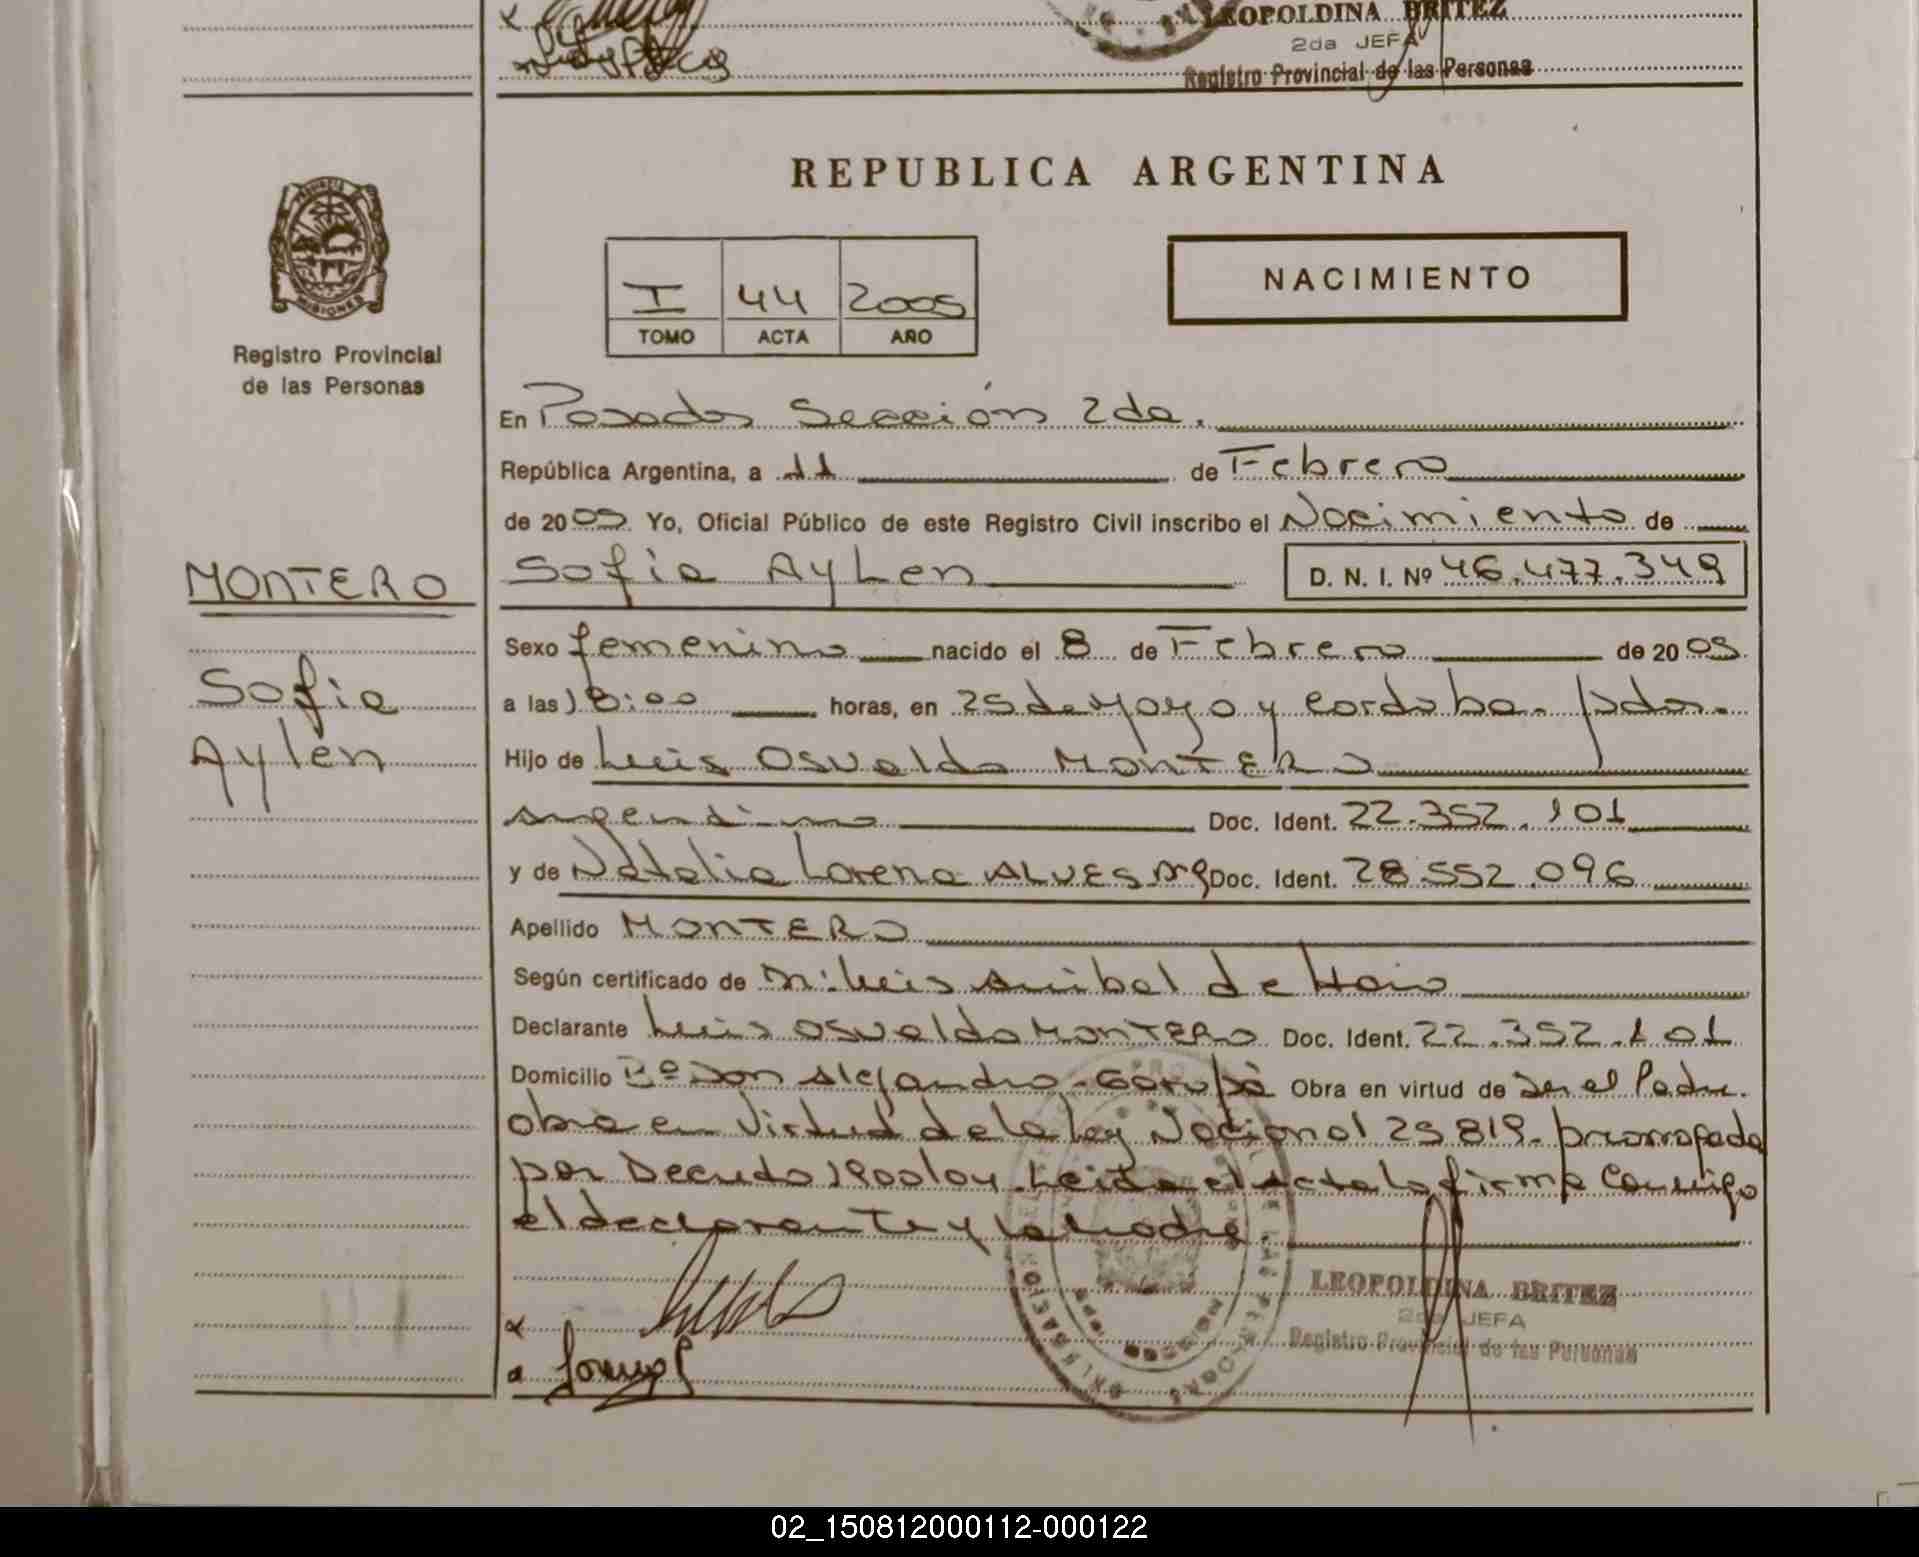 LEOPOLDINA BRITEZ
2da JEFA
Registro Provincial de las Personas
PROVINCIA
MISIONES
Registro Provincial
de las Personas
MONTERO
Sofia
Aylen
REPUBLICA ARGENTINA
I 44 2005
TOMO ACTA AÑO
NACIMIENTO
En Posadas Sección 2da.
República Argentina, a 11 de Febrero
de 2005 Yo, Oficial Público de este Registro Civil inscribo el Nacimiento de
Sofia Aylen D. N. I. Nº 46.477.349
Sexo femenino nacido el 8 de Febrero de 2005
a las 18:00 horas, en 25 de Mayo y Cordoba. Pdas.
Hijo de Luis Osvaldo MONTERO
argentino Doc. Ident. 22.352.101
y de Natalia Lorena ALVES Arg Doc. Ident. 28.552.096
Apellido MONTERO
Según certificado de Luis Anibal de
Declarante Luis Osvaldo MONTERO Doc. Ident. 22.352.101
Domicilio Bº Don Alejandro - Garupá Obra en virtud de ser el Padre.
obra en Virtud de la Ley Nacional 25.819. prorrogada
por Decreto 1900/04. Leida el acta la firma conmigo
el declarante y la madre.
LEOPOLDINA BRITEZ
2da JEFA
Registro Provincial de las Personas
02_150812000112-000122